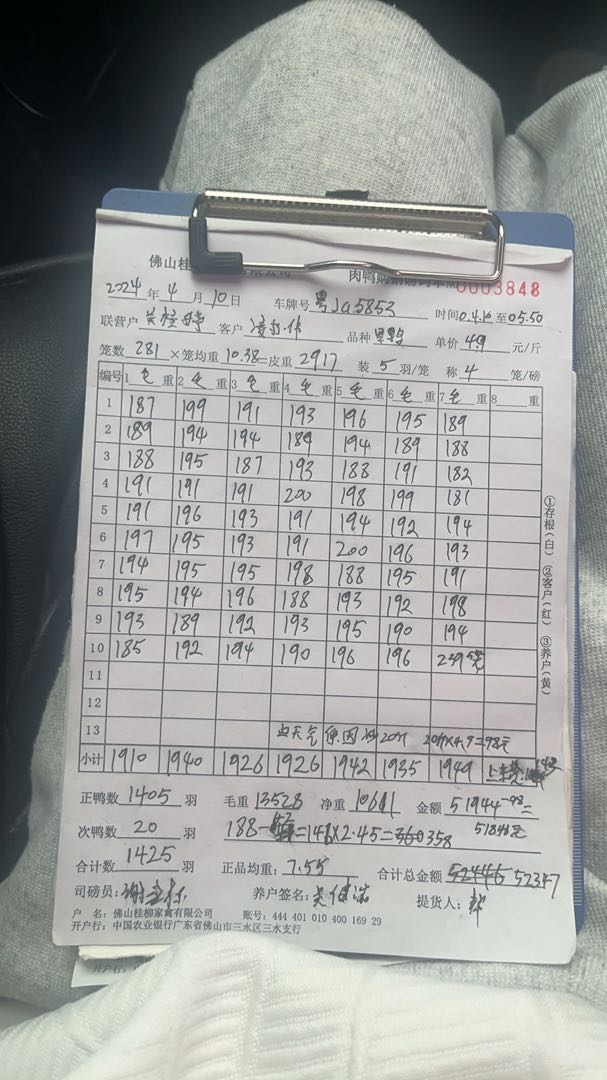 佛山桂 肉鸭购销 0003848
2024年4月10日 车牌号 粤Ja5853 时间 至05.50
联营户 客户 品种 黑鸭 单价4.9元/斤
笼数281×笼均重10.38=皮重2917 装5羽/笼 称4笼/磅
编号 1毛重 2毛重 3毛重 4毛重 5毛重 6毛重 7毛重 8 重
1 187 199 191 193 196 195 189
2 189 194 194 189 194 189 188
3 188 195 187 193 188 191 182
4 191 191 191 200 198 199 181
5 191 196 193 191 194 192 194
6 197 195 193 191 200 196 193
7 194 195 195 198 188 195 191
8 195 194 196 188 193 192 198
9 193 189 192 193 195 190 194
10 185 192 194 190 196 196 239
11
12
13 天气原因 20斤 20斤×4.9=98元
小计 1910 1940 1926 1926 1942 1935 1949
正鸭数1405羽 毛重13528 净重10611 金额51944-98=
次鸭数20羽 188- =146×2.45=360 358 51846元
合计数1425羽 正品均重:7.55 合计总金额52446 52347
司磅员: 养户签名: 提货人:
户 名:佛山桂柳家禽有限公司 账号:444 401 010 400 169 29
开户行:中国农业银行广东省佛山市三水区三水支行
①存根(白) ②客户(红) ③养户(黄)
开户行: